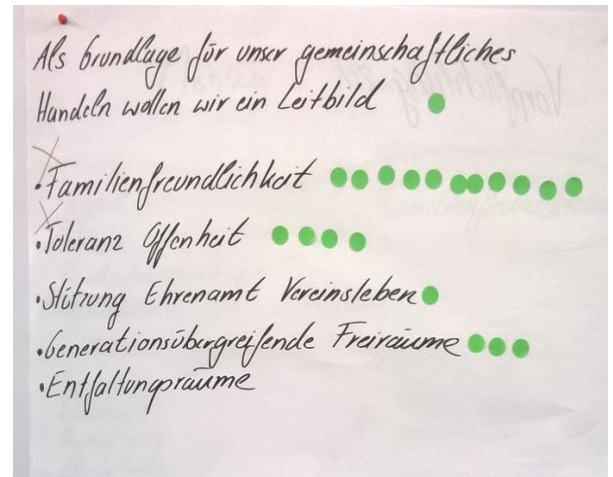 Als Grundlage für unser gemeinschaftliches
Handeln wollen wir ein Leitbild
• Familienfreundlichkeit
• Toleranz Offenheit
• Stützung Ehrenamt Vereinsleben
• Generationsübergreifende Freiräume
• Entfaltungsräume